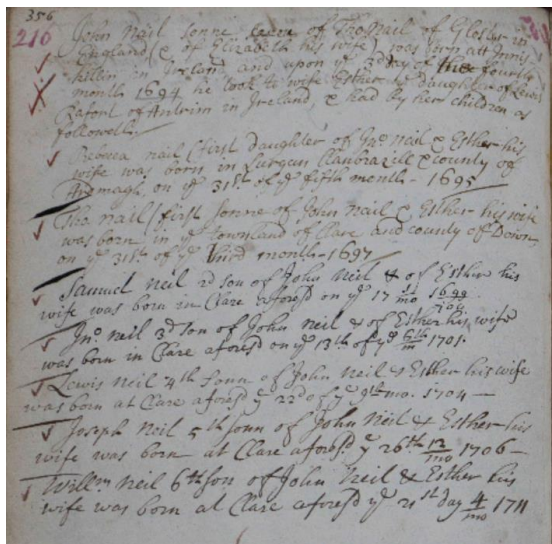 356
210
John Nail sonne of Tho Nail of Gloster in
England (& of Elizabeth his wife) was born att Innis
killin in Ireland and upon ye 3 day of the fourth
month 1694 he took to wife Esther ye Daughter of Lewis
Raford of Antrim in Ireland, & had by her children as
followeth
Rebecca nail (first daughter of Jno Neil & Esther his
wife was born in Lurgan Clanbrazill & county of
Ardmagh, on ye 31st of ye fifth month - 1695
Tho Nail (first sonne of John Nail & Esther his wife
was born in ye Townland of Clare and county of Down
on ye 31st of ye third month - 1697
Samuel Neil 2d son of John Neil & of Esther his
wife was born in Clare aforesd on ye 17 11/mo 1699
Jno Neil 3d son of John Neil & of Esther his wife
was born in Clare aforesd on ye 13th of ye 6th/m 1701.
Lewis Neil 4th sonn of John Neil & Esther his wife
was born at Clare aforesd ye 22d of ye 9th mo. 1704 —
Joseph Neil 5th sonn of John Neil & Esther his
wife was born at Clare aforesd. ye 26th 12/mo 1706 —
Willm Neil 6th son of John Neil & Esther his
wife was born at Clare aforesd ye 21st day 4/mo 1711